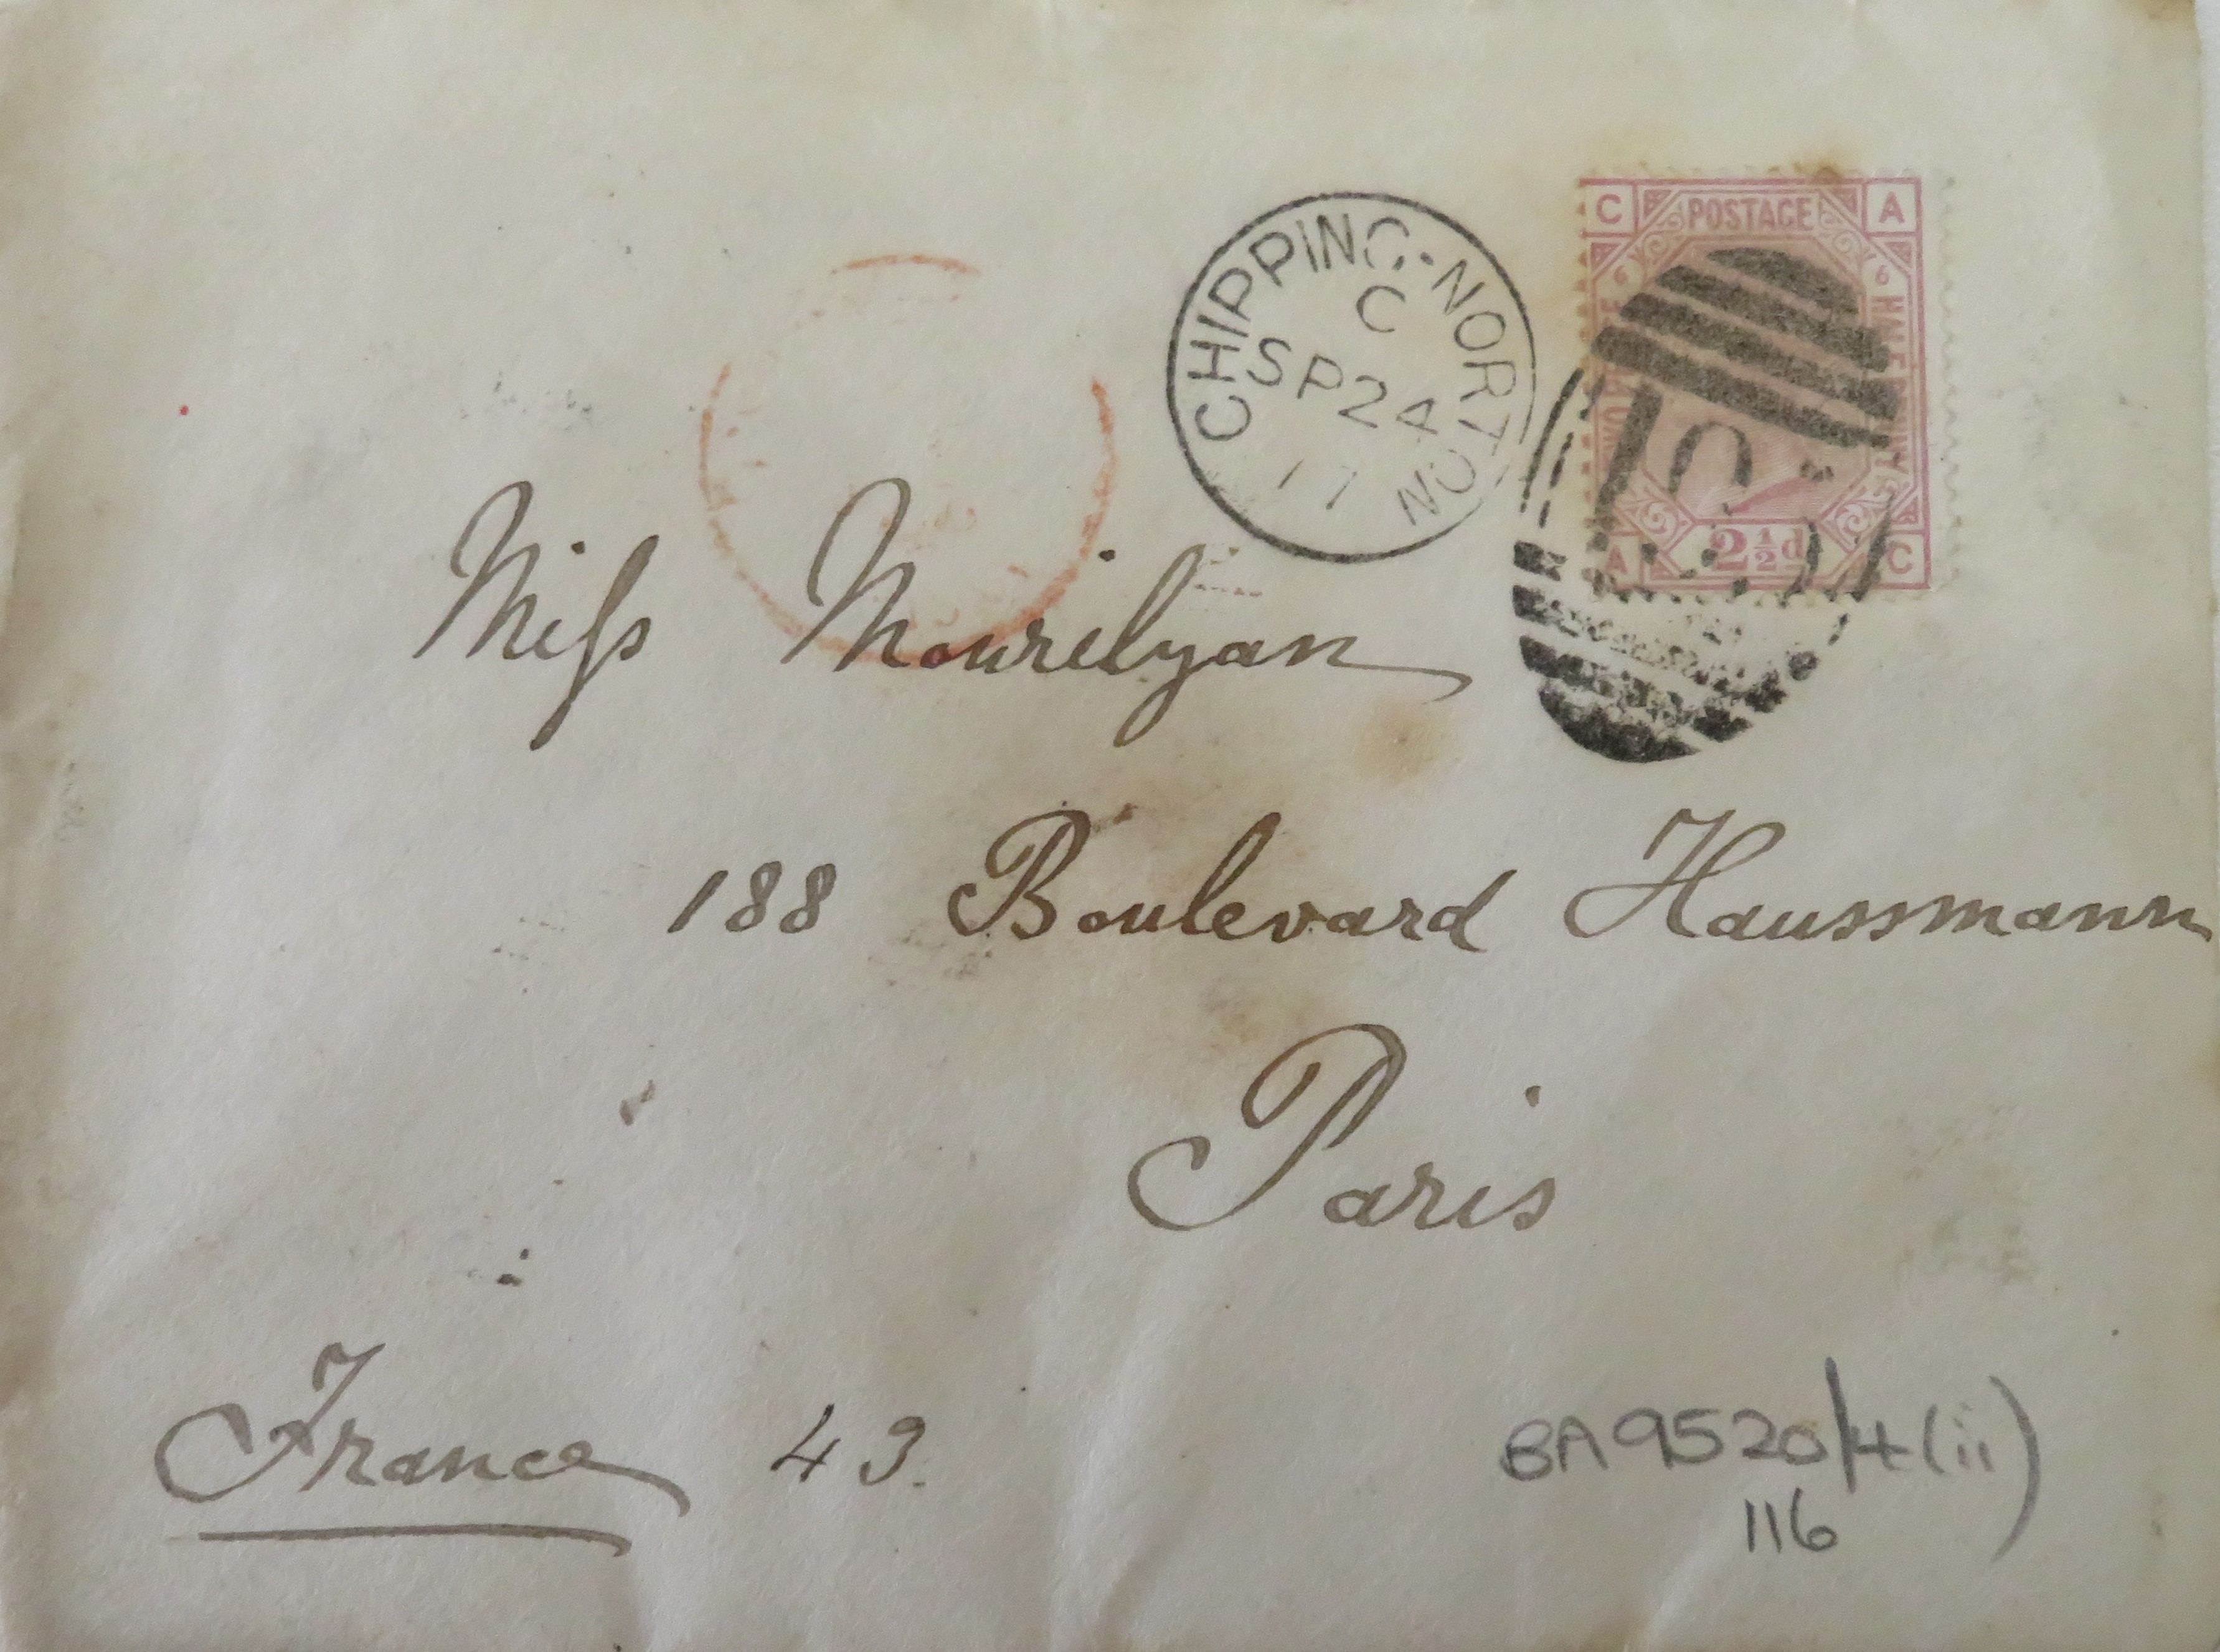 C POSTAGE A
6 6
CHIPPING-NORTON
C
SP24
77
A 2½d C
Miss Mourilyan
188 Boulevard Haussmann
Paris
France 43.
BA9520/4(ii)
116